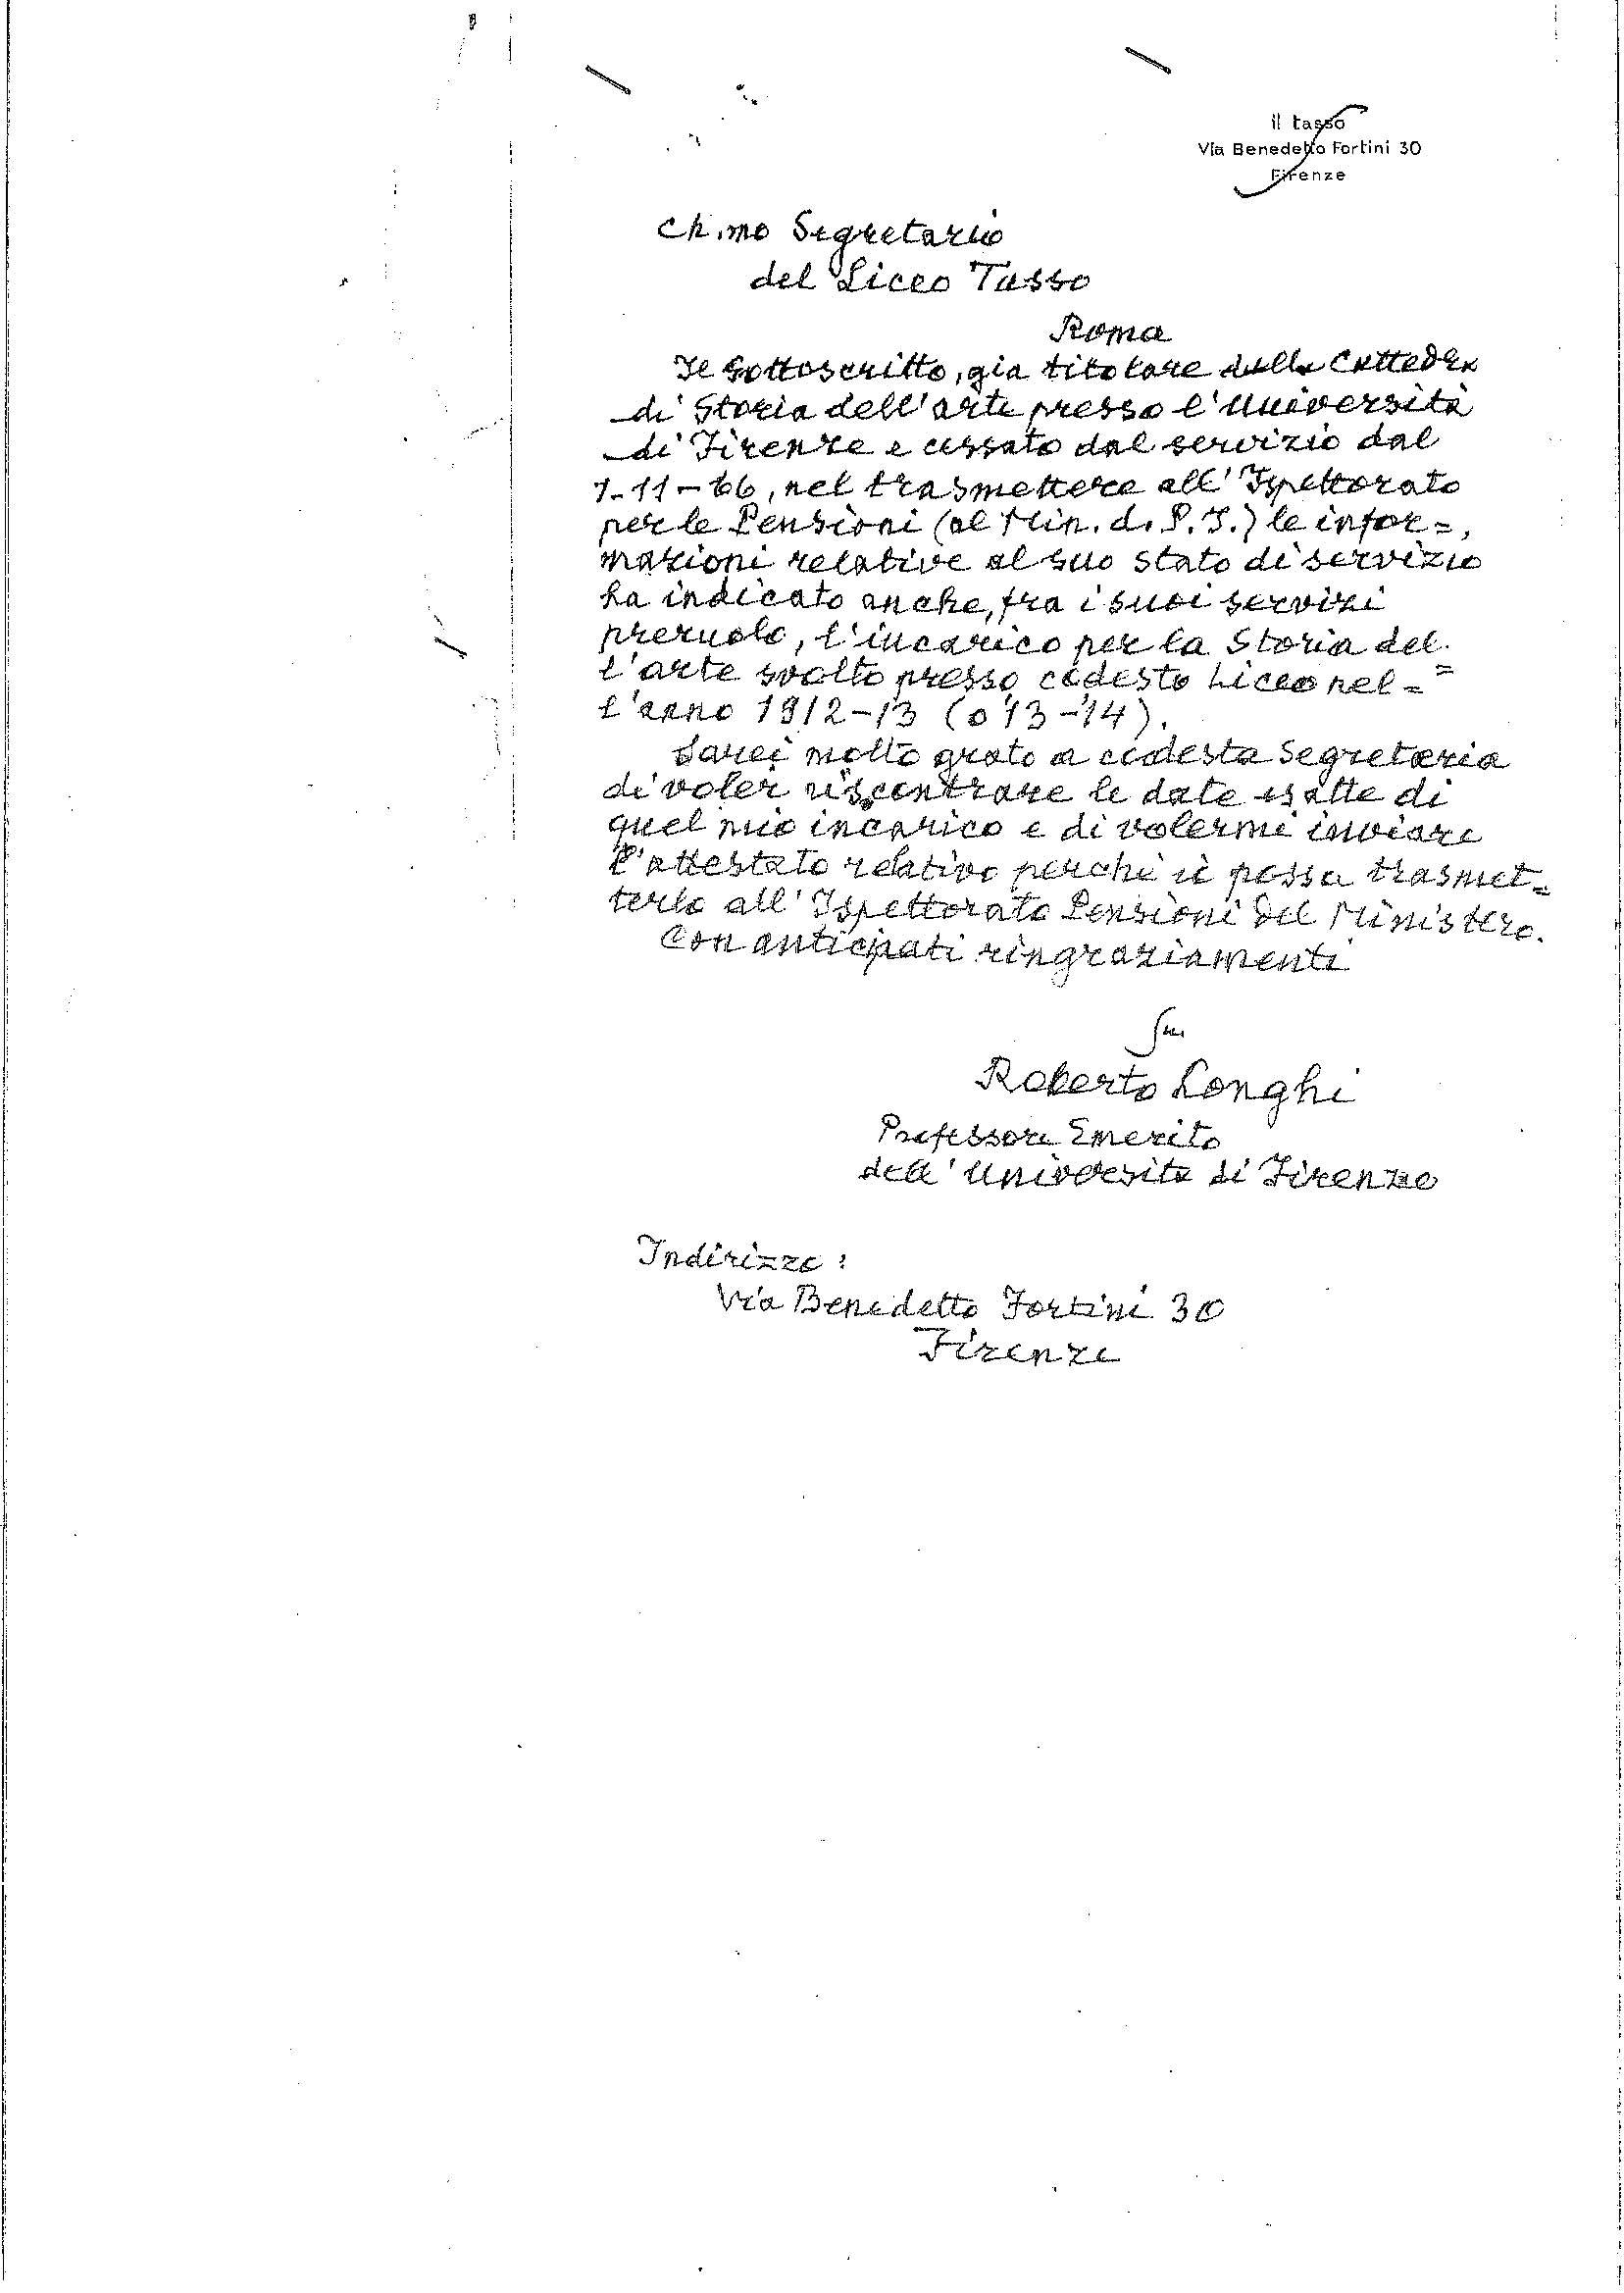 il tasso
Via Benedetto Fortini 30
Firenze
Ch.mo Segretario
del Liceo Tasso
Roma
Il sottoscritto, già titolare della Cattedra
di Storia dell'arte presso l'Università
di Firenze e cessato dal servizio dal
1-11-66, nel trasmettere all'Ispettorato
per le Pensioni (al Min. d. P. I.) le infor=
mazioni relative al suo stato di servizio
ha indicato anche, fra i suoi servizi
preruolo, l'incarico per la Storia del=
l'arte svolto presso codesto Liceo nel=
l'anno 1912-13 (o '13-'14).
Sarei molto grato a codesta Segreteria
di voler riscontrare le date esatte di
quel mio incarico e di volermi inviare
l'attestato relativo perché si possa trasmet=
terlo all'Ispettorato Pensioni del Ministero.
Con anticipati ringraziamenti
Suo
Roberto Longhi
Professore Emerito
dell'Università di Firenze
Indirizzo:
Via Benedetto Fortini 30
Firenze